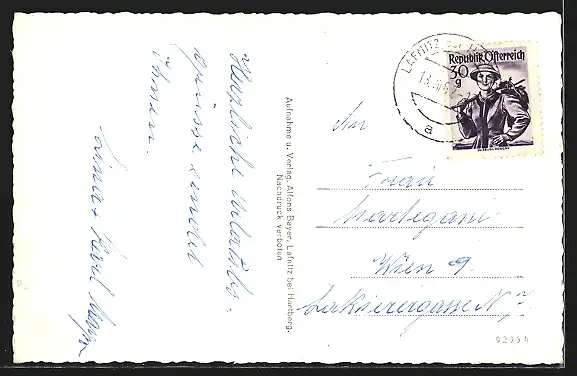 Herzliche Urlaubs-
grüsse sendet
Ihnen.
Karl
Aufnahme u. Verlag, Alfons Bayer, Lafnitz bei Hartberg.
Nachdruck verboten
LAFNITZ
a
Republik Österreich
30
g
An
Frau
Wien 9.
92554